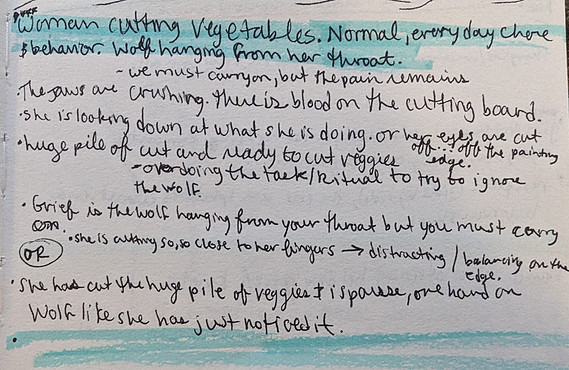 Woman cutting vegetables. Normal, everyday chore
& behavior. Wolf hanging from her throat.
- we must carry on, but the pain remains
• The jaws are crushing. There is blood on the cutting board.
• She is looking down at what she is doing. or her eyes are cut
off... off the painting
edge.
• huge pile of cut and ready to cut veggies
- overdoing the task/ritual to try to ignore
the wolf.
• Grief is the wolf hanging from your throat but you must carry
on.
• she is cutting so, so close to her fingers → distracting / balancing on the
edge.
OR
• She has cut the huge pile of veggies & is pause, one hand on
Wolf like she has just noticed it.